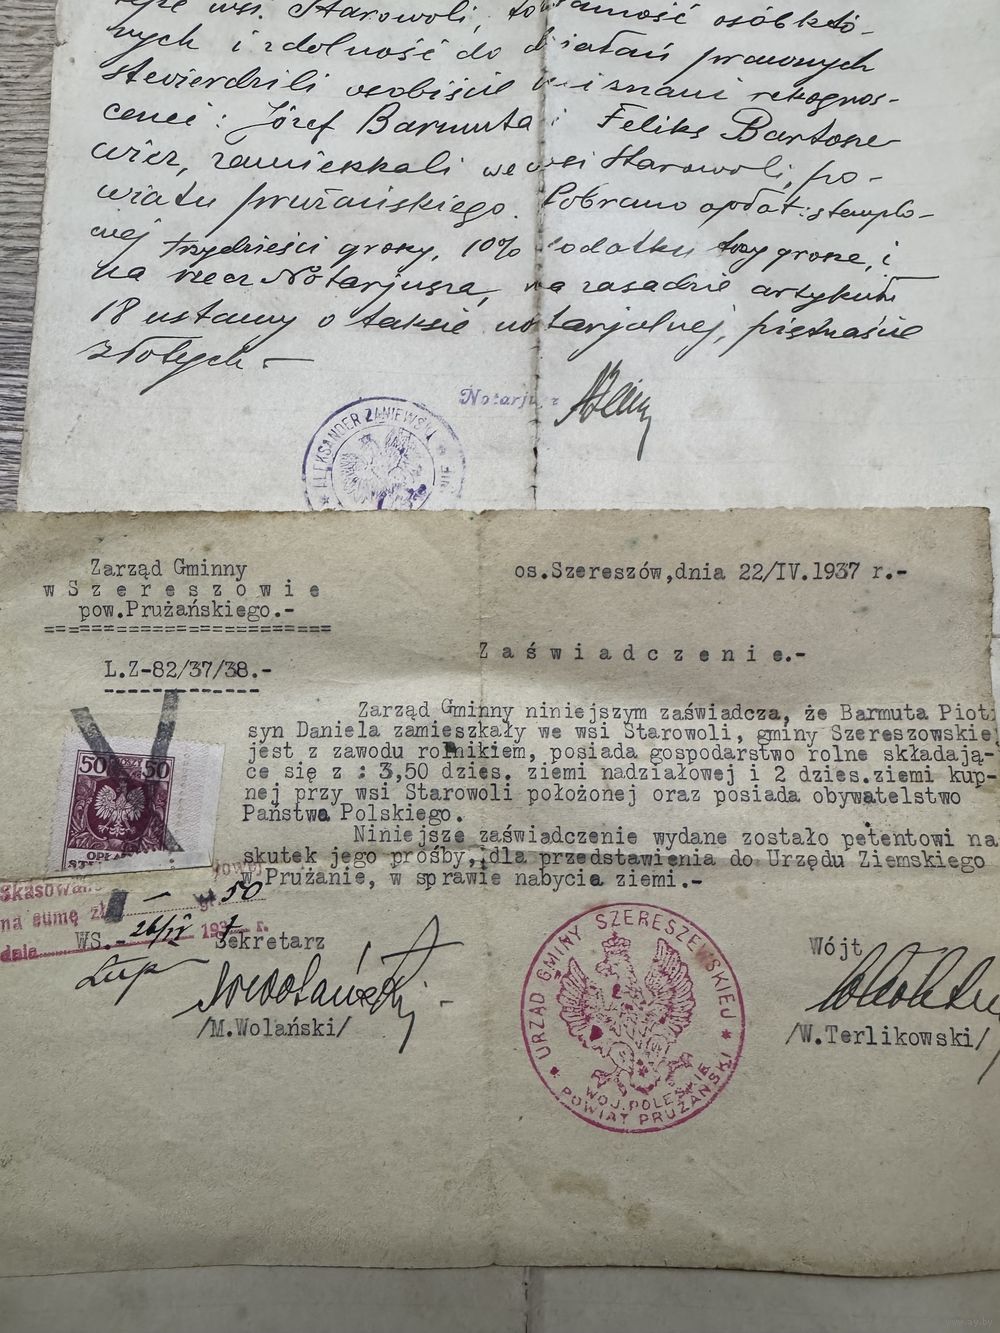 wsi Starowoli, tożsamość osób któ-
rych i zdolność do działań prawnych
stwierdzili osobiście mi znani rekognos-
cenci: Józef Barmuta i Feliks Bartose
wicz, zamieszkali we wsi Starowoli, po-
wiatu prużańskiego. Pobrano opłat: stemplo-
wej trzydzieści groszy, 10% dodatku trzy grosze, i
na rzecz Notarjusza, na zasadzie artykułu
18 ustawy o taksie notarjalnej, piętnaście
złotych.-
Notarjusz
ALEKSANDER ZANIEWSKI
Zarząd Gminny
w Szereszowie
pow.Prużańskiego.-
======================
os.Szereszów,dnia 22/IV.1937 r.-
L.Z-82/37/38.-
Zaświadczenie.-
Zarząd Gminny niniejszym zaświadcza, że Barmuta Piotr
syn Daniela zamieszkały we wsi Starowoli, gminy Szereszowskiej
jest z zawodu rolnikiem, posiada gospodarstwo rolne składają-
ce się z : 3,50 dzies. ziemi nadziałowej i 2 dzies.ziemi kup-
nej przy wsi Starowoli położonej oraz posiada obywatelstwo
Państwa Polskiego.
Niniejsze zaświadczenie wydane zostało petentowi na
skutek jego prośby, dla przedstawienia do Urzędu Ziemskiego
w Prużanie, w sprawie nabycia ziemi.-
50 50
Skasowano
na sumę zł — gr 50
dnia 26/IV 1937 r.
WS.-
Sekretarz
/M.Wolański/
URZĄD GMINY SZERESZEWSKIEJ
WOJ. POLESKIE
POWIAT PRUŻAŃSKI
Wójt
/W.Terlikowski/
www.ay.by